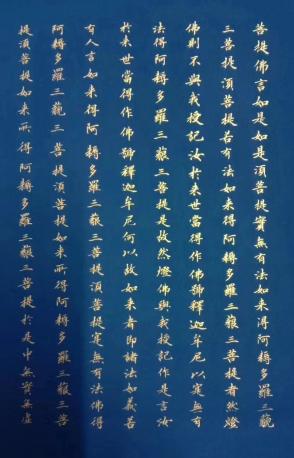 菩提佛言如是如是湏菩提實無有法如来得阿耨多羅三藐
三菩提湏菩提若有法如来得阿耨多羅三藐三菩提者然燈
佛則不與我授記汝於来世當得作佛號釋迦牟尼以實無有
法得阿耨多羅三藐三菩提是故然燈佛與我授記作是言汝
於来世當得作佛號釋迦牟尼何以故如来者即諸法如義若
有人言如来得阿耨多羅三藐三菩提湏菩提實無有法佛得
阿耨多羅三藐三菩提湏菩提如来所得阿耨多羅三藐三菩
提湏菩提如来所得阿耨多羅三藐三菩提於是中無實無虛